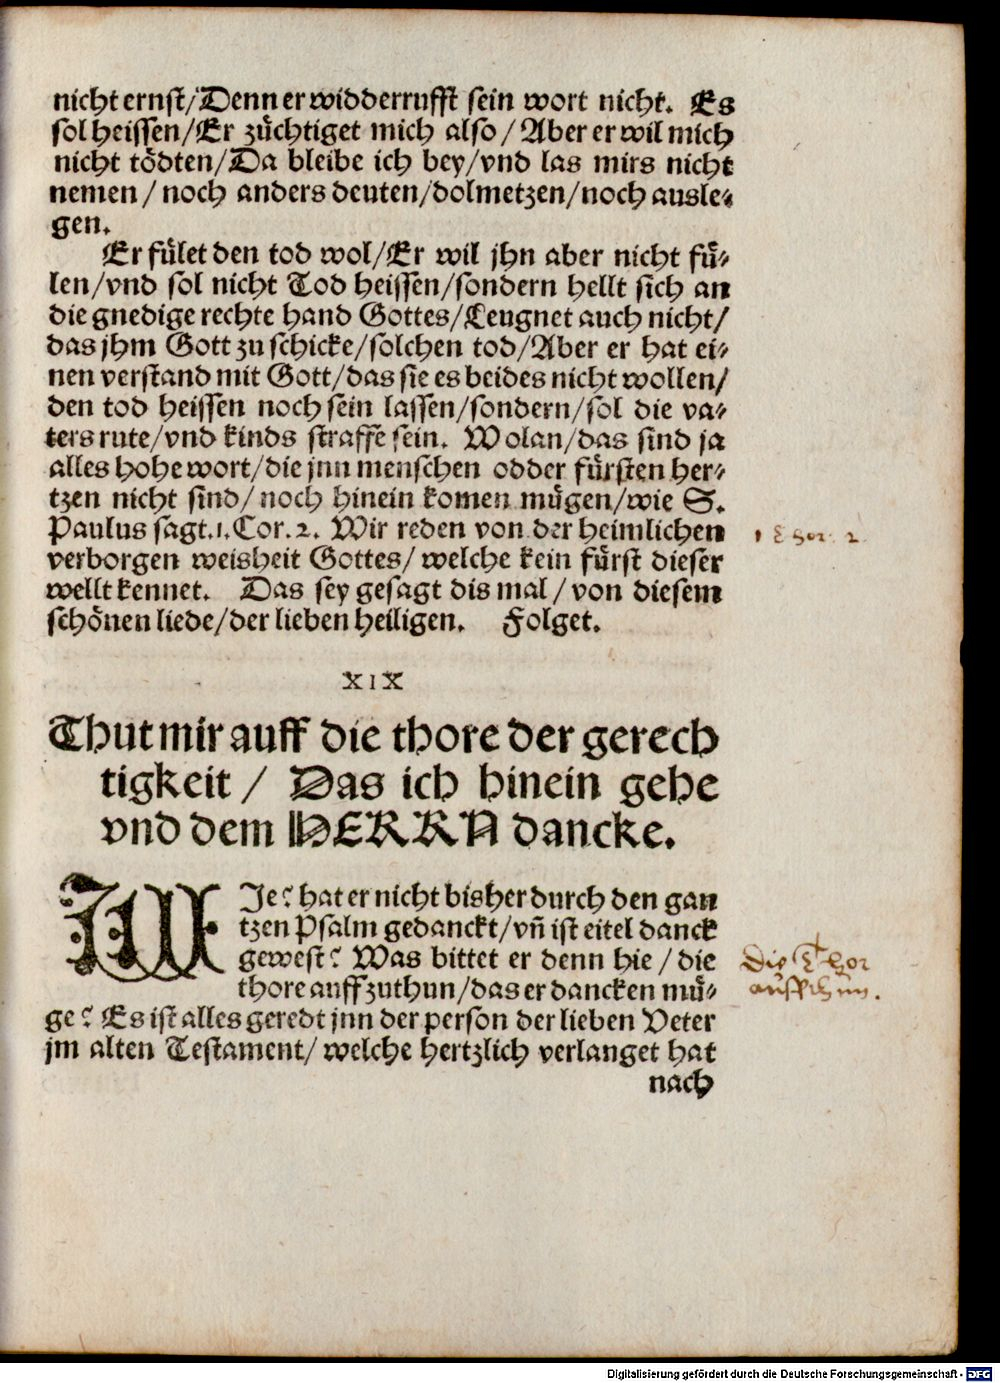 nicht ernst/Denn er widderrufft sein wort nicht. Es
sol heissen/Er züchtiget mich also/Aber er wil mich
nicht tödten/Da bleibe ich bey/vnd las mirs nicht
nemen/noch anders deuten/dolmetzen/noch ausle-
gen.
Er fület den tod wol/Er wil jhn aber nicht fü-
len/vnd sol nicht Tod heissen/sondern hellt sich an
die gnedige rechte hand Gottes/Leugnet auch nicht/
das jhm Gott zu schicke/solchen tod/Aber er hat ei-
nen verstand mit Gott/das sie es beides nicht wollen/
den tod heissen noch sein lassen/sondern/sol die va-
ters rute/vnd kinds straffe sein. Wolan/das sind ja
alles hohe wort/die jnn menschen odder fürsten her-
tzen nicht sind/noch hinein komen mügen/wie S.
Paulus sagt.1.Cor.2. Wir reden von der heimlichen
1 Chor. 2.
verborgen weisheit Gottes/welche kein fürst dieser
wellt kennet. Das sey gesagt dis mal/von diesem
schönen liede/der lieben heiligen. Folget.
XIX
Thut mir auff die thore der gerech
tigkeit/Das ich hinein gehe
vnd dem HERRN dancke.
WJe? hat er nicht bisher durch den gan
tzen Psalm gedanckt/vñ ist eitel danck
gewest? Was bittet er denn hie/die
Die Thor
thore auffzuthun/das er dancken mü-
auffthun.
ge? Es ist alles geredt jnn der person der lieben Veter
jm alten Testament/welche hertzlich verlanget hat
nach
Digitalisierung gefördert durch die Deutsche Forschungsgemeinschaft - DFG